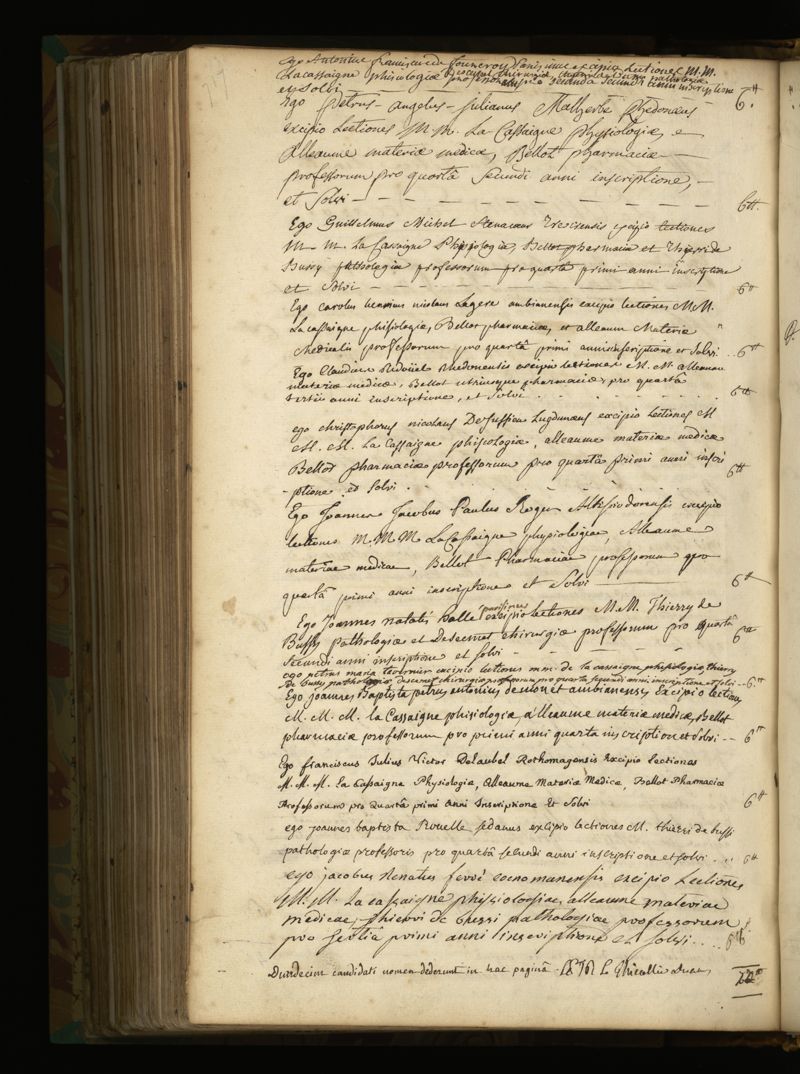 Ego Antonius franciscus de fourcroy Parisinus excipio Lectiones M.M.
Lacassaigne phisiologiæ Descemet chirurgiæ
professorum pro secunda secundi anni inscriptione
et Solvi
Ego Petrus-angelus-julianus Malherbe Rhedonæus 6tt.
excipio Lectiones M.M. La Cassaigne physiologiæ, e
Alleaume materiæ medicæ, Bellot pharmaciæ
professorum pro quartâ Secundi anni inscriptione,
et Solvi 6tt.
Ego Guillelmus Michel Trecisensis excipio Lectiones
M.M. La Cassaigne Physiologiæ, Bellot pharmaciæ et Thierri de
Bussy pathologiæ professorum pro quartâ primi anni inscriptione
et Solvi 6tt
Ego carolus henricus nicolaus Lagere ambianensis excipio lectiones M.M.
La cassaigne phisiologiæ, Bellot pharmaciæ, et alleaum Materiæ
Medicalis professorum pro quartâ primi anni inscriptione et Solvi .. 6tt
Ego Claudius Redoüel Rhedonensis excipio lectiones M.M. alleaum
materiæ medicæ, Bellot utriusque pharmaciæ, pro quartâ
tertii anni inscriptione, et Solvi 6tt
ego christophorus nicolaus Dejussieu Lugdunæus excipio Lectiones M
M.M. La Cassaigne phisologiæ, alleaume materiæ medicæ
Bellot pharmaciæ professorum pro quartâ primi anni inscri
-ptione et Solvi 6tt
Ego Joannes Jacobus Paulus Roger Altissiodorensis excipio
lectiones M.M.M. LaCassaigne physiologiæ, Alleaume
materiae medicae, Bellot Pharmaciae professorum pro
quartâ primi anni inscriptione et Solvi 6tt
Ego Joannes natalis halle parisinus excipio lectiones M.M. Thierry de
Bussy pathologiæ et Descemet chirurgiæ professorum pro quartâ
Secundi anni inscriptione et Solvi 6tt
ego petrus maria tavernier excipio lectiones mm. de la cassaigne phisiologiæ, thierry
de bussy pathologiæ, descemet chirurgiæ professorum pro quarta secundi anni inscriptione et solvi .. 6tt
Ego joannes Baptista petrus antonius denoncet ambianensis Excipio lectiones
M.M.M. la Cassaigne phisiologiæ, alleaume materiæ medicæ, Bellot
pharmaciæ professorum pro primi anni quarta inscriptione et Solvi -- 6tt
Ego franciscus Julius Victor Delaubel Rothomagensis Excipio Lectiones
M.M.M. La Cassaigne Physiologiæ, Alleaume Materiæ Medicæ, Bellot Pharmaciæ
Professorum pro Quartâ primi Anni Inscriptione Et Solvi 6tt
ego joannes baptista Rouelle sedanus excipio lectiones M. thierri de bussi
pathologiæ professoris pro quartâ secundi anni inscriptione et solvi ... 6tt
ego jacobus Renatus ferré cenomanensis excipio Lectiones
M.M. La cassaigne phisiologiae, alleaume materiae
medicae, thierri de bussi pathologiae professorum
pro tertiâ primi anni inscriptione et solvi .... 6tt
Duodecim candidati nomen dederunt in hac paginâ.